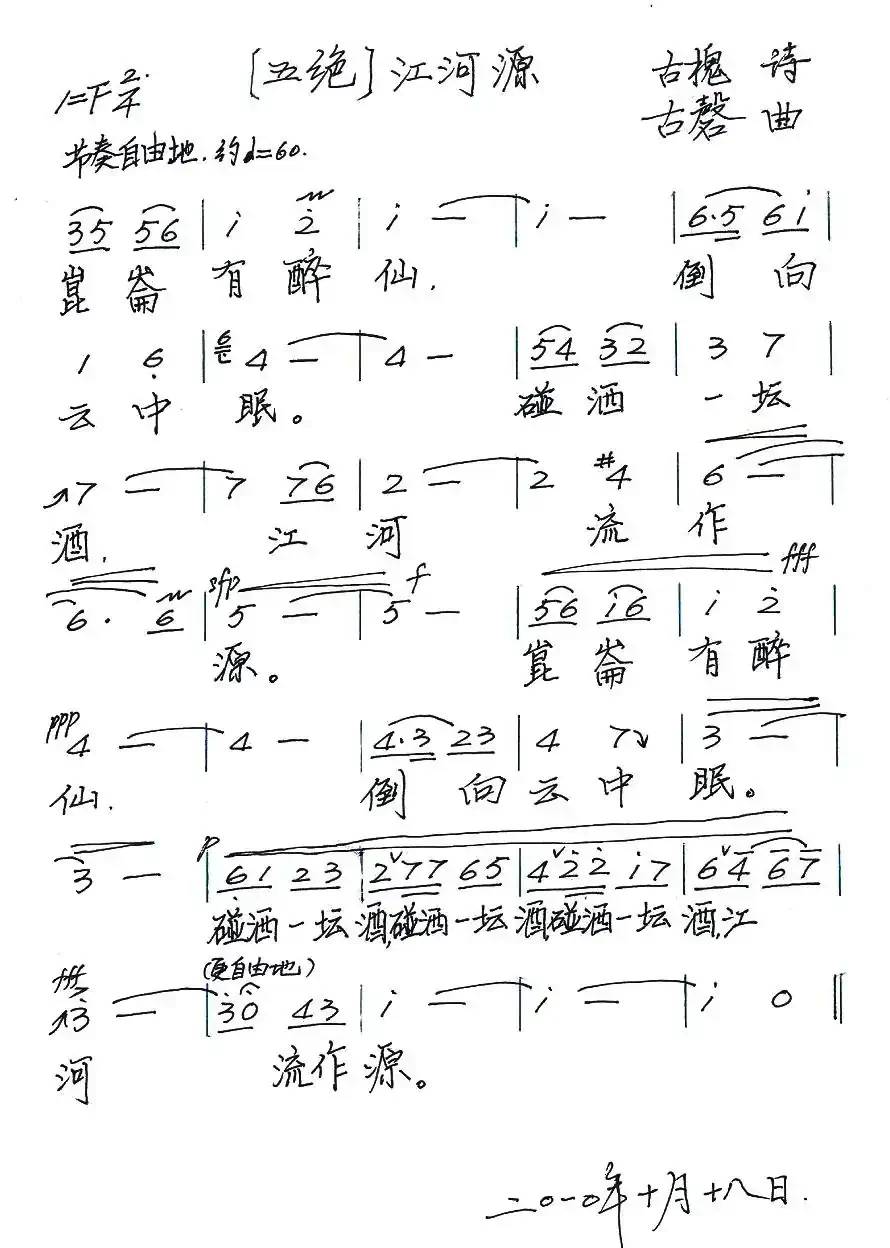 [五绝]江河源
古槐 诗
1=F 2/4
古磬 曲
节奏自由地.约d=60.
35 56 | i 2̇ | i — | i — | 6·5 6i |
崑崙有醉仙. 倒向
1 6̣ | 4 — | 4 — | 54 32 | 3 7
云中眠。 碰酒一坛
↗7 — | 7 76 | 2 — | 2 #4 | 6 — |
酒. 江河 流作
6· 6 | sfp 5 — | f 5 — | 56 i6 | fff i 2̇ |
源。 崑崙有醉
ppp 4 — | 4 — | 4·3 23 | 4 7↘ | 3 — |
仙. 倒向云中眠。
3 — p | 6̣1 23 | 2ˇ77 65 | 4ˇ2̇2̇ i7 | 6ˇ4̇ 67 |
碰酒一坛酒,碰酒一坛酒,碰酒一坛酒,江
(更自由地)
fff > ↗3̇ — | 3̇0 43 | i — | i — | i 0 ‖
河 流作源。
二〇一〇年十月十八日.